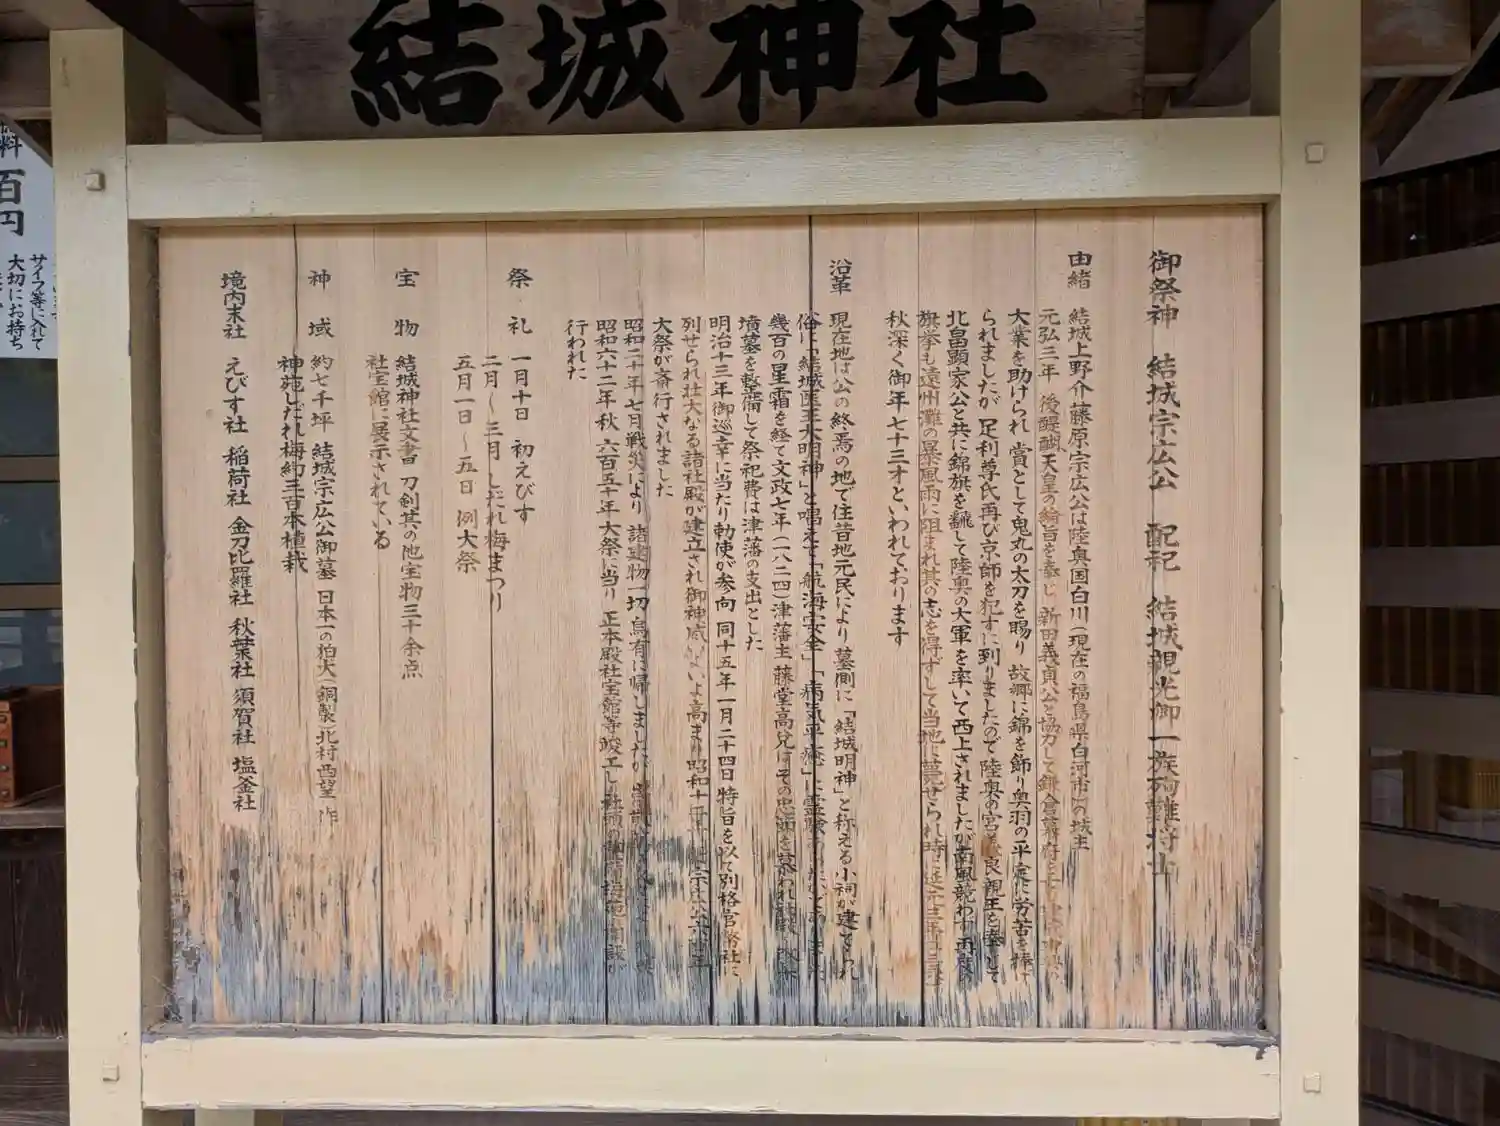 結城神社
御祭神 結城宗広公 配祀 結城親光卿 一族殉難将士
由緒 結城上野介藤原宗広公は陸奥国白川(現在の福島県白河市)の城主
元弘三年 後醍醐天皇の綸旨を奉じ 新田義貞公と協力して鎌倉幕府を
大業を助けられ 賞として鬼丸の太刀を賜り 故郷に錦を飾り奥羽の平定に労苦を捧げ
られましたが 足利尊氏再び京師を犯すに到りましたので 陸奥の宮義良親王を奉じて
北畠顕家公と共に錦旗を飜して陸奥の大軍を率いて西上されましたが南風競わず 再度の
旗挙も遠州灘の暴風雨に阻まれ其の志を得ずして当地に薨ぜられ時に延元三年
秋深く御年七十三才といわれております
沿革 現在地は公の終焉の地で往昔地元民により墓側に「結城明神」と称える小祠が建てられ
俗に「結城医王大明神」と唱えて「航海安全」「病気平癒」に霊験
幾百の星霜を経て文政七年(一八二四)津藩主 藤堂高兌はその忠節を慕われ
墳墓を整備して祭祀費は津藩の支出とした
明治十三年御巡幸に当たり勅使が参向 同十五年一月二十四日特旨を以て別格官幣社に
列せられ壮大なる諸社殿が建立され御神威いよいよ高まり昭和十
大祭が斎行されました
昭和二十年七月戦災により 諸建物一切烏有に帰しましたが
昭和六十二年秋 六百五十年大祭に当り 正本殿社宝館等竣工し
行われた
祭礼 一月十日 初えびす
二月〜三月 しだれ梅まつり
五月一日〜五日 例大祭
宝物 結城神社文書 刀剣其の他宝物三十余点
社宝館に展示されている
神域 約七千坪 結城宗広公御墓 日本一の狛犬(銅製)北村西望 作
神苑しだれ梅約三百本植栽
境内末社 えびす社 稲荷社 金刀比羅社 秋葉社 須賀社 塩釜社
料 百円
サイフ等に入れて
大切にお持ち